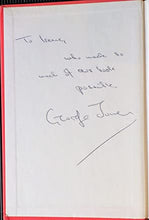 To Irene,
who made so
much of this book
possible.
George Jones